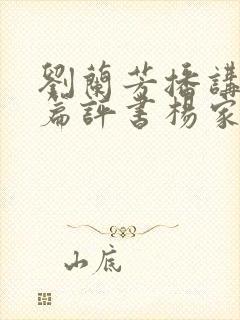 劉蘭芳播講
篇評書楊家
山底